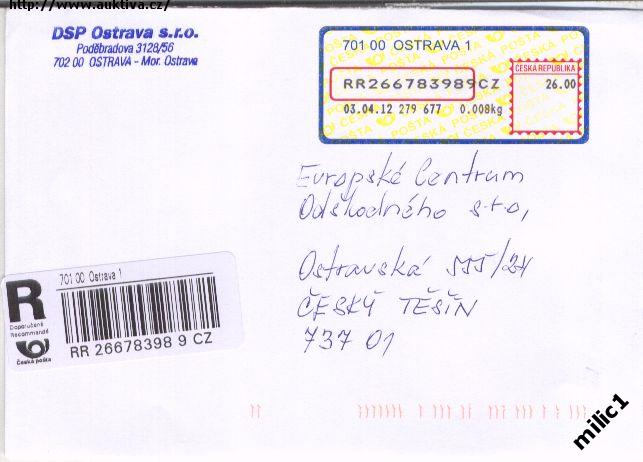 http://www.auktiva.cz/
DSP Ostrava s.r.o.
Poděbradova 3128/56
702 00 OSTRAVA - Mor. Ostrava
701 00 OSTRAVA 1
ČESKÁ REPUBLIKA
RR266783989CZ 26.00
03.04.12 279 677 0.008kg
Evropské Centrum
Odškodného s.r.o,
Ostravská 555/24
ČESKÝ TĚŠÍN
737 01
701 00 Ostrava 1
R
Doporučeně
Recommandé
Česká pošta
RR 26678398 9 CZ
milic1